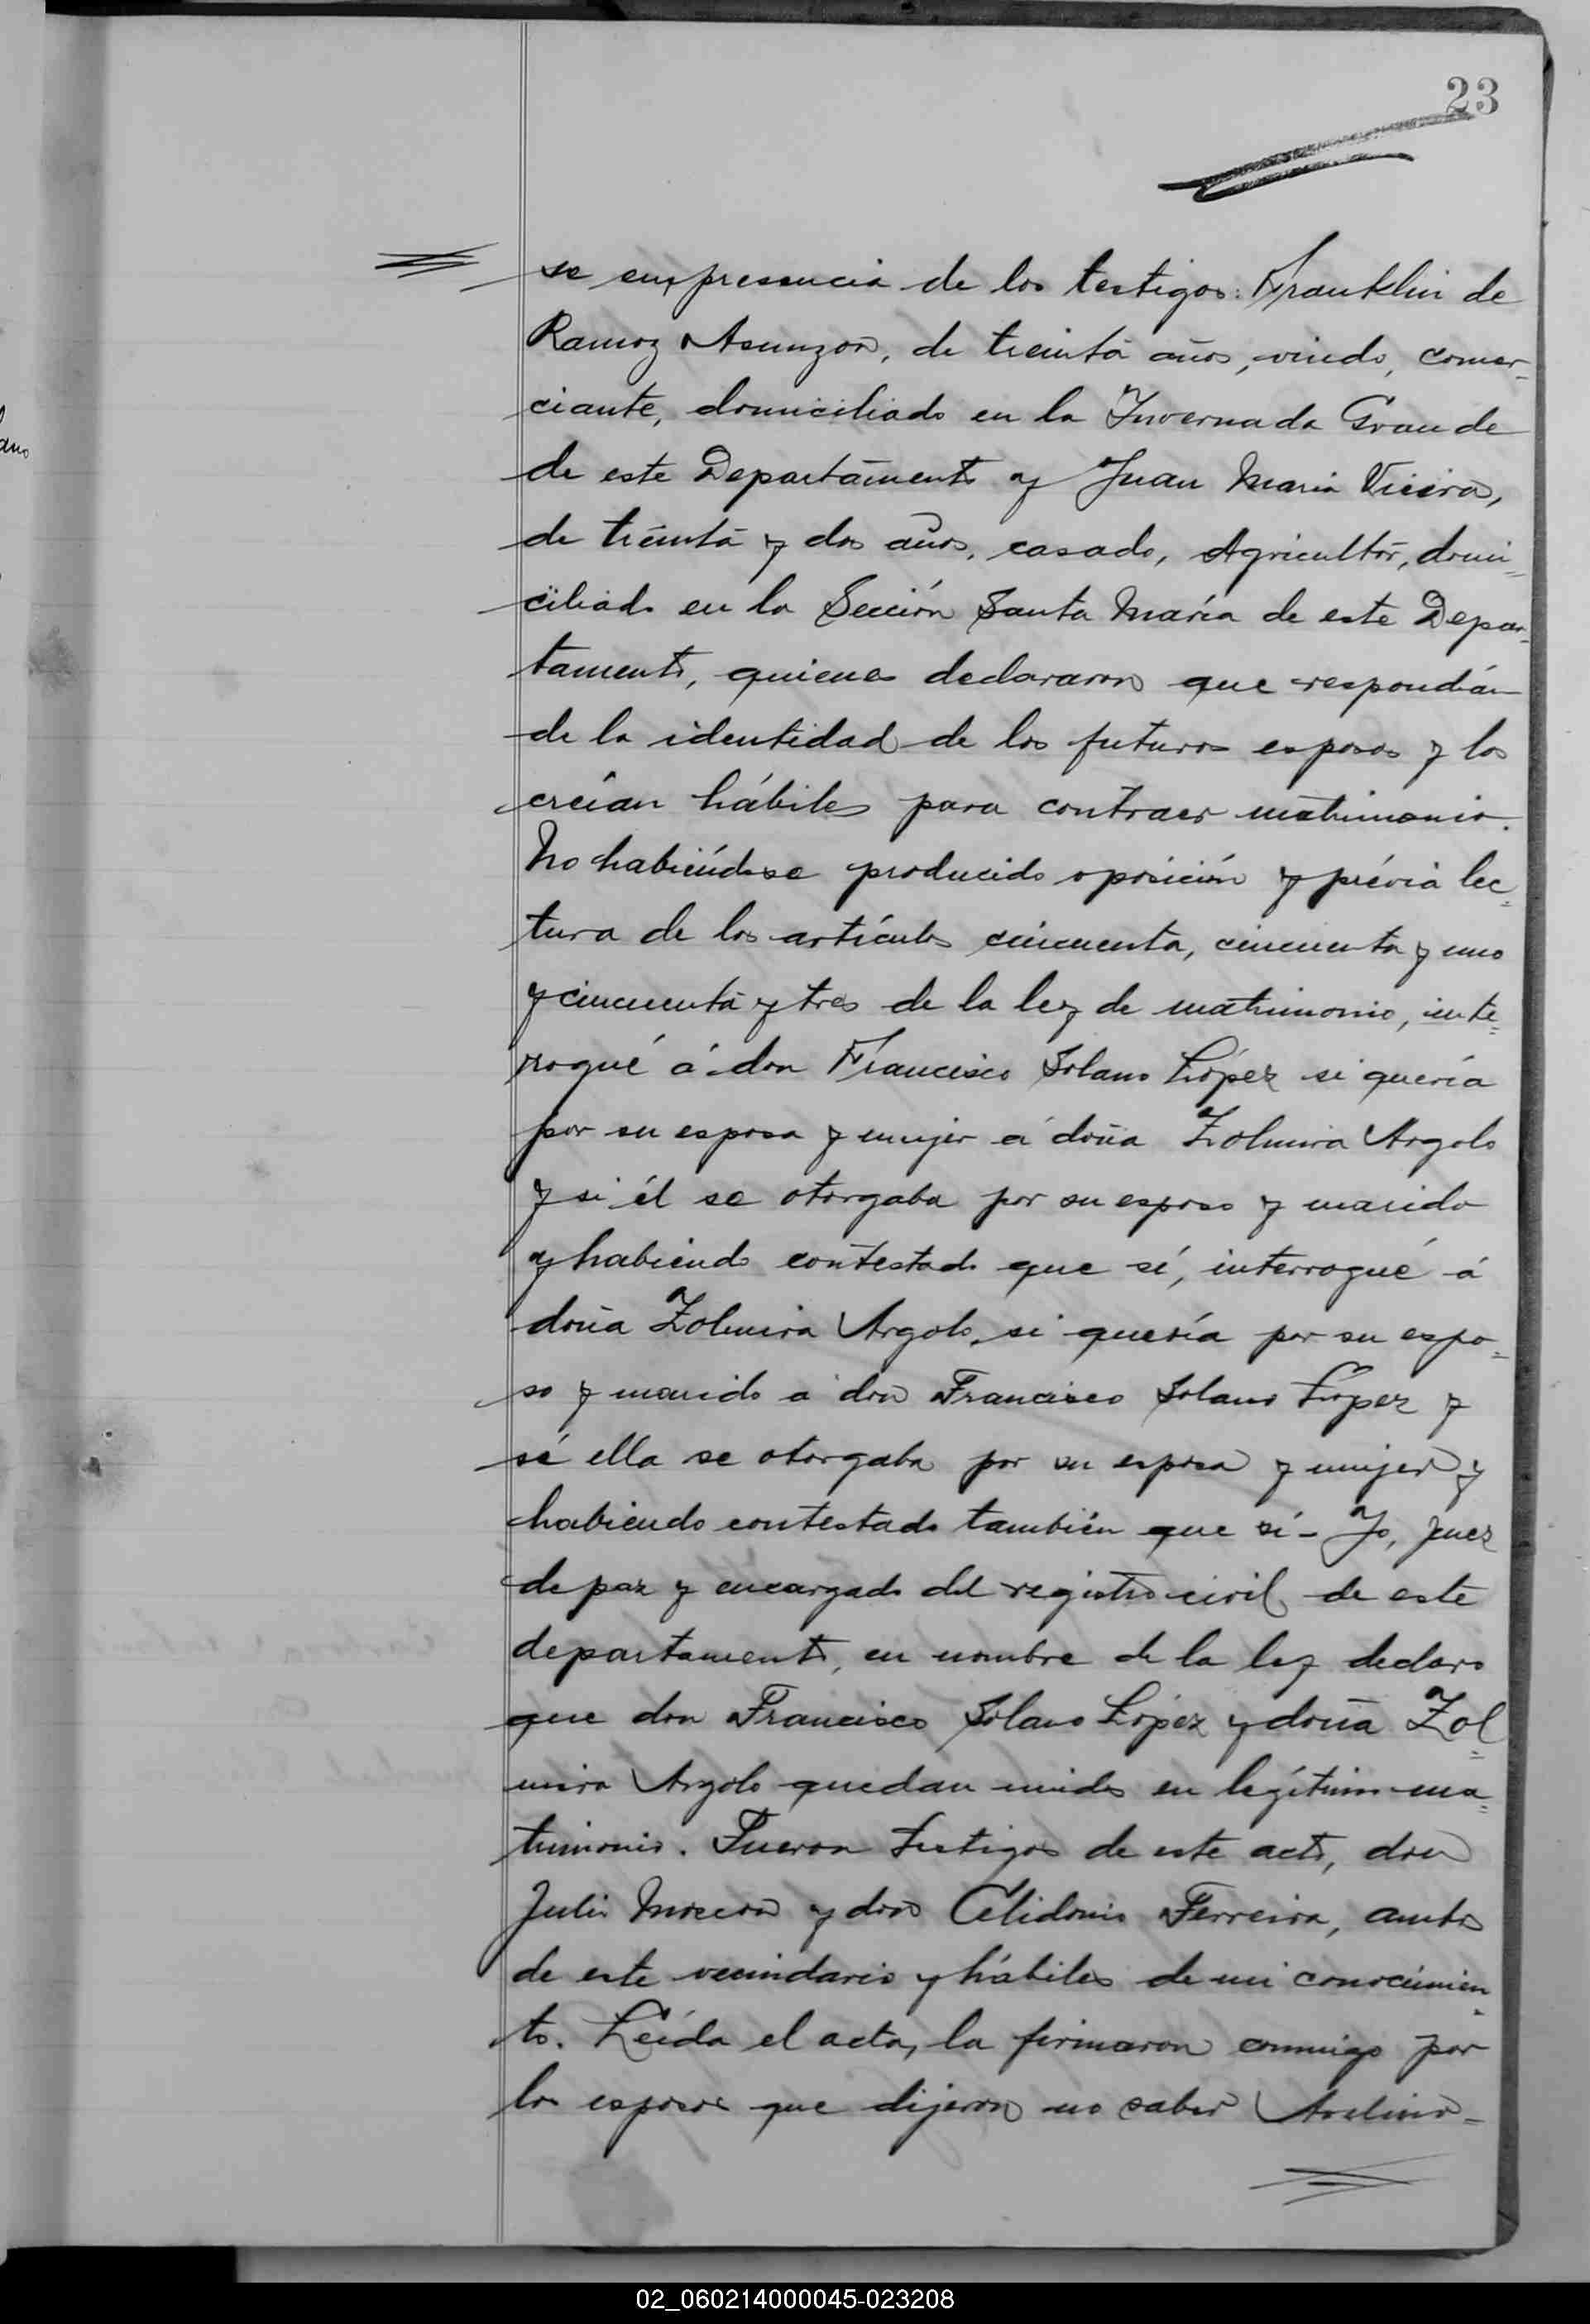 23
se en presencia de los testigos: Franklin de
Ramoz Asunzon, de treinta años, viudo, comer-
ciante, domiciliado en la Invernada Grande
de este Departamento y Juan Maria Vieira,
de treinta y dos años, casado, Agricultor, domi-
ciliado en la Sección Santa María de este Depar-
tamento, quienes declararon que respondían
de la identidad de los futuros esposos y los
creían hábiles para contraer matrimonio.
No habiéndose producido oposición y prévia lec-
tura de los artículos cincuenta, cincuenta y uno
y cincuenta y tres de la ley de matrimonio, inte-
rogué á don Francisco Solano López si quería
por su esposa y mujer á doña Zolmira Argolo
y si él se otorgaba por su esposo y marido
y habiendo contestado que sí, interrogué á
doña Zolmira Argolo, si quería por su espo-
so y marido a don Francisco Solano López y
sí ella se otorgaba por su esposa y mujer y
habiendo contestado también que sí - Yo, Juez
de paz y encargado del registro civil de este
departamento, en nombre de la ley declaro
que don Francisco Solano López y doña Zol-
mira Argolo quedan unidos en legítimo ma-
trimonio. Fueron testigos de este acto, don
Julio y don Celidonio Ferreira, ambos
de este vecindario y hábiles de mi conocimien-
to. Leída el acta, la firmaron conmigo por
los esposos que dijeron no saber Avelino-
02_060214000045-023208